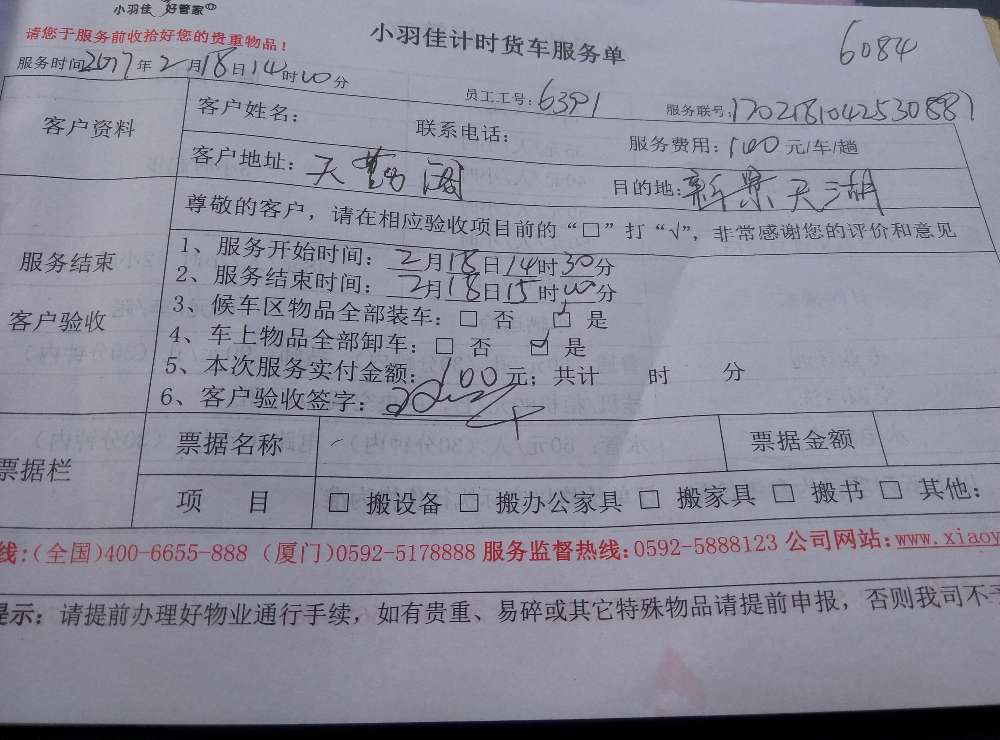 小羽佳 好管家
请您于服务前收拾好您的贵重物品！
小羽佳计时货车服务单
6084
服务时间2017年2月18日14时00分
员工工号：6391
服务联号：170218104253088
客户资料
客户姓名：
联系电话：
服务费用：100元/车/趟
客户地址：天 阁
目的地：新景天湖
尊敬的客户，请在相应验收项目前的“□”打“√”，非常感谢您的评价和意见
服务结束
客户验收
1、服务开始时间：2月18日14时30分
2、服务结束时间：2月18日15时00分
3、候车区物品全部装车：□ 否 ☑ 是
4、车上物品全部卸车：□ 否 ☑ 是
5、本次服务实付金额：100元；共计 时 分
6、客户验收签字：
票据栏
票据名称
票据金额
项 目
□ 搬设备 □ 搬办公家具 □ 搬家具 □ 搬书 □ 其他：
线：(全国)400-6655-888 (厦门)0592-5178888 服务监督热线：0592-5888123 公司网站：www.xiaoy
提示：请提前办理好物业通行手续，如有贵重、易碎或其它特殊物品请提前申报，否则我司不予